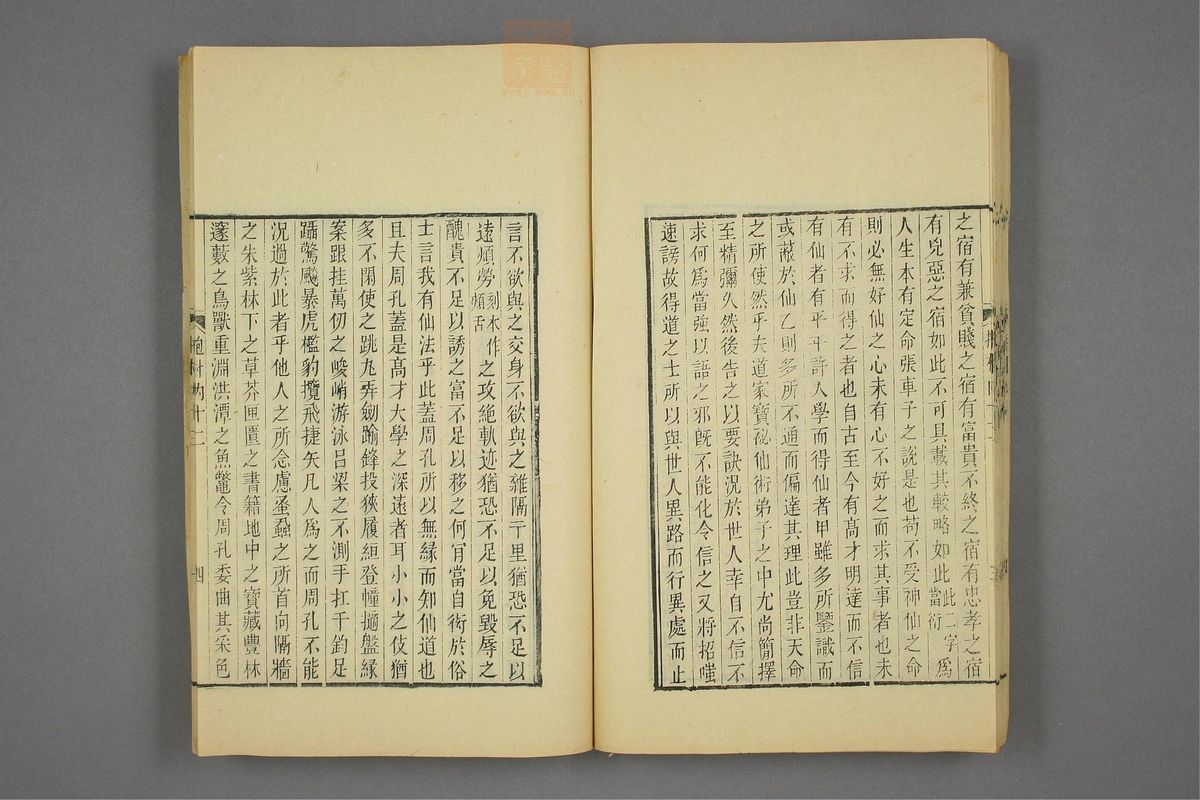 之宿有兼貧賤之宿有富貴不終之宿有忠孝之宿
有兇惡之宿如此不可具載其較略如此此二字當衍爲
人生本有定命張車子之說是也苟不受神仙之命
則必無好仙之心未有心不好之而求其事者也未
有不求而得之者也自古至今有高才明達而不信
有仙者有平平許人學而得仙者甲雖多所鑒識而
或蔽於仙乙則多所不通而偏達其理此豈非天命
之所使然乎夫道家寶祕仙術弟子之中尤尚簡擇
至精彌久然後告之以要訣況於世人幸自不信不
求何爲當強以語之邪旣不能化令信之又將招嗤
速謗故得道之士所以與世人異路而行異處而止
言不欲與之交身不欲與之雜隔千里猶恐不足以
遠煩勞刻本作煩舌之攻絕軌迹猶恐不足以免毀辱之
醜貴不足以誘之富不足以移之何肯當自衒於俗
士言我有仙法乎此蓋周孔所以無緣而知仙道也
且夫周孔蓋是高才大學之深遠者耳小小之伎猶
多不閑使之跳丸弄劍踰鋒投狹履絙登幢擿盤緣
案跟挂萬仞之峻峭游泳呂梁之不測手扛千鈞足
躡驚飈暴虎檻豹攬飛捷矢凡人爲之而周孔不能
況過於此者乎他人之所念慮蚤蝨之所首向隔牆
之朱紫林下之草芥匣匱之書籍地中之寶藏豐林
邃藪之鳥獸重淵洪潭之魚鼈令周孔委曲其采色
四